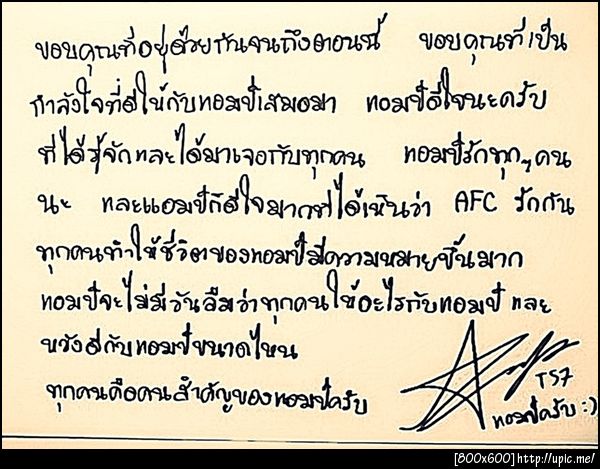 ขอบคุณที่อยู่ด้วยกันจนถึงตอนนี้ ขอบคุณที่เป็น
กำลังใจที่ดีให้กับแอมป์เสมอมา แอมป์ดีใจนะครับ
ที่ได้รู้จักและได้มาเจอกับทุกคน แอมป์รักทุกๆคน
นะ และแอมป์ก็ดีใจมากที่ได้เห็นว่า AFC รักกัน
ทุกคนทำให้ชีวิตของแอมป์มีความหมายขึ้นมาก
แอมป์จะไม่มีวันลืมว่าทุกคนให้อะไรกับแอมป์ และ
หวังดีกับแอมป์ขนาดไหน
ทุกคนคือคนสำคัญของแอมป์ครับ
TS7
แอมป์ครับ :)
[800x600]http://upic.me/